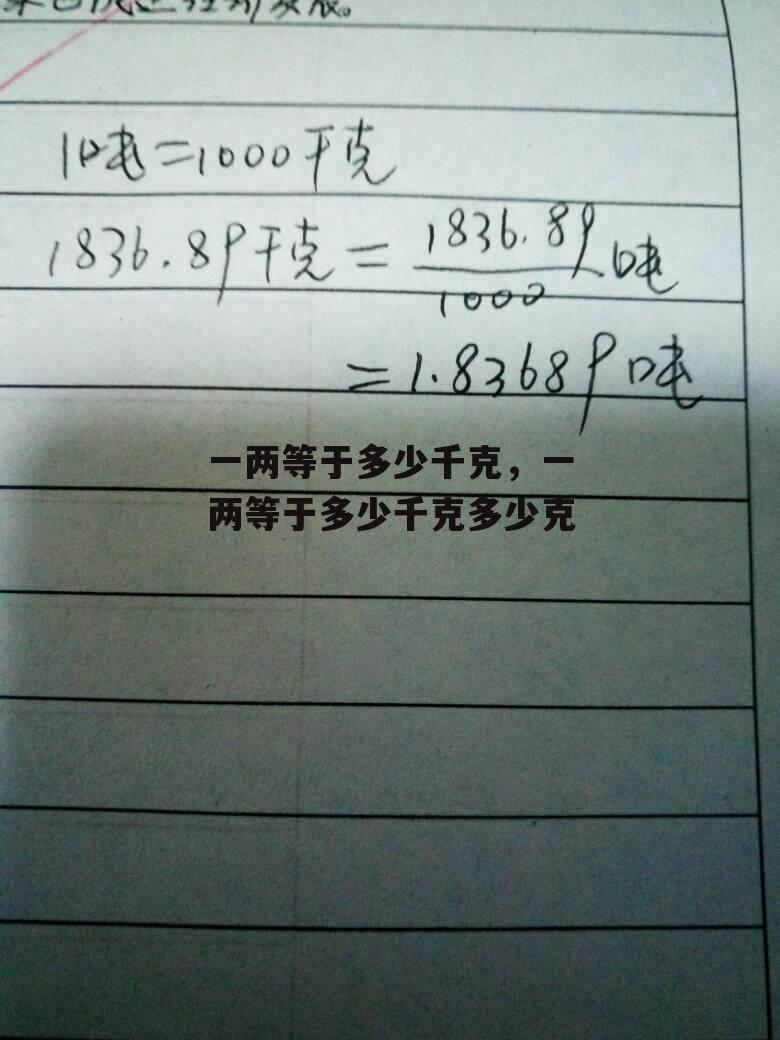 1吨=1000千克
1836.89千克=1836.89/1000吨
=1.83689吨
一两等于多少千克，一
两等于多少千克多少克